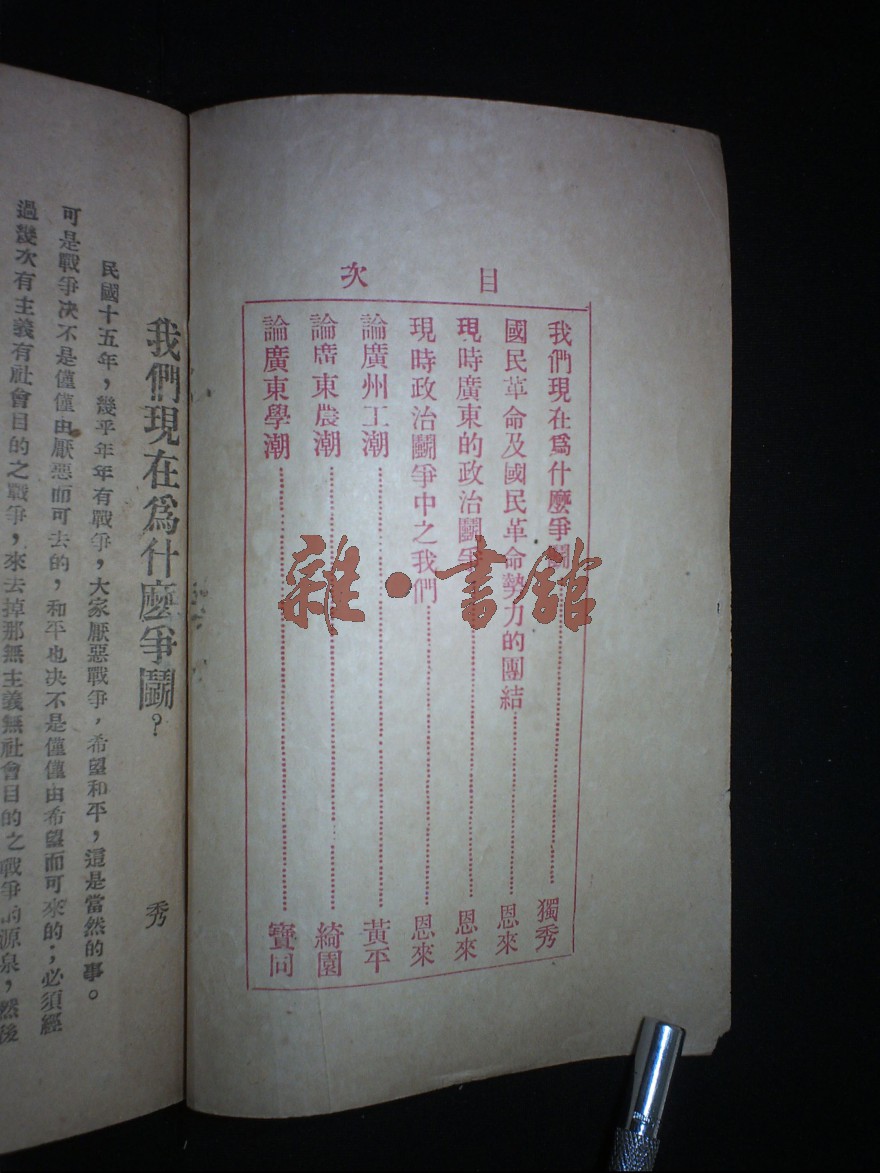 目次
我們現在爲什麼爭鬭 獨秀
國民革命及國民革命勢力的團結 恩來
現時廣東的政治鬭爭 恩來
現時政治鬭爭中之我們 恩來
論廣州工潮 黃平
論廣東農潮 綺園
論廣東學潮 寶同
雜·書館
我們現在爲什麼爭鬭？
秀
民國十五年，幾乎年年有戰爭，大家厭惡戰爭，希望和平，這是當然的事。
可是戰爭決不是僅僅由厭惡而可去的，和平也決不是僅僅由希望而可來的；必須經
過幾次有主義有社會目的之戰爭，來去掉那無主義無社會目的之戰爭的源泉，然後